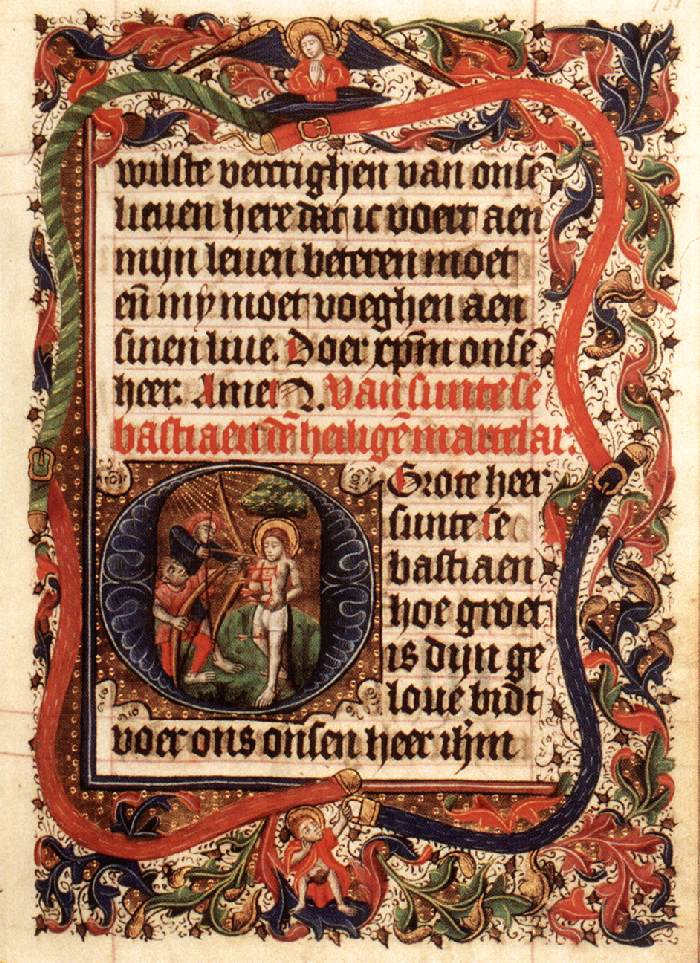 wilste vercrighen van onsē
lieuen here dat ic voert aen
mijn leuen beteren moet
eñ my moet voeghen aen
sinen wille. Doer xp̄m onsē
heer. Amen. Van sunte se
bastiaen dē heiligē martelar.
O Grote heer
sunte se
bastiaen
hoe groet
is dijn ge
loue bidt
voer ons onsen heer ihm̄